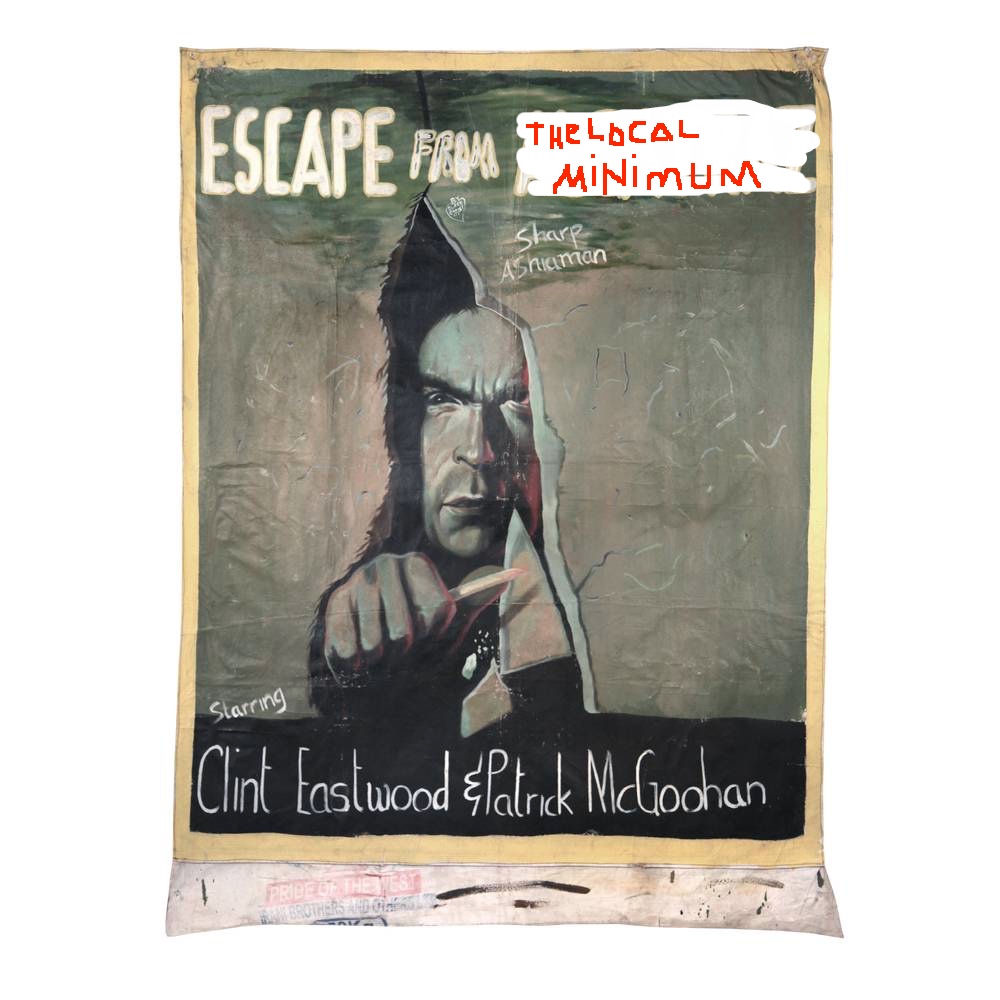 ESCAPE FROM THE LOCAL
MINIMUM
Sharp
AShiaman
Starring
Clint Eastwood & Patrick McGoohan
PRIDE OF THE WEST
BROTHERS AND